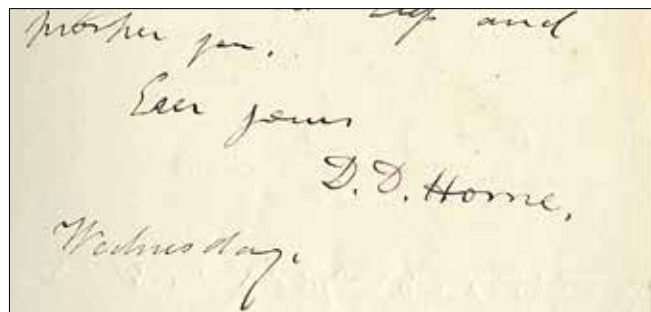 and
prosper you.
Ever yours
D. D. Home.
Wednesday.